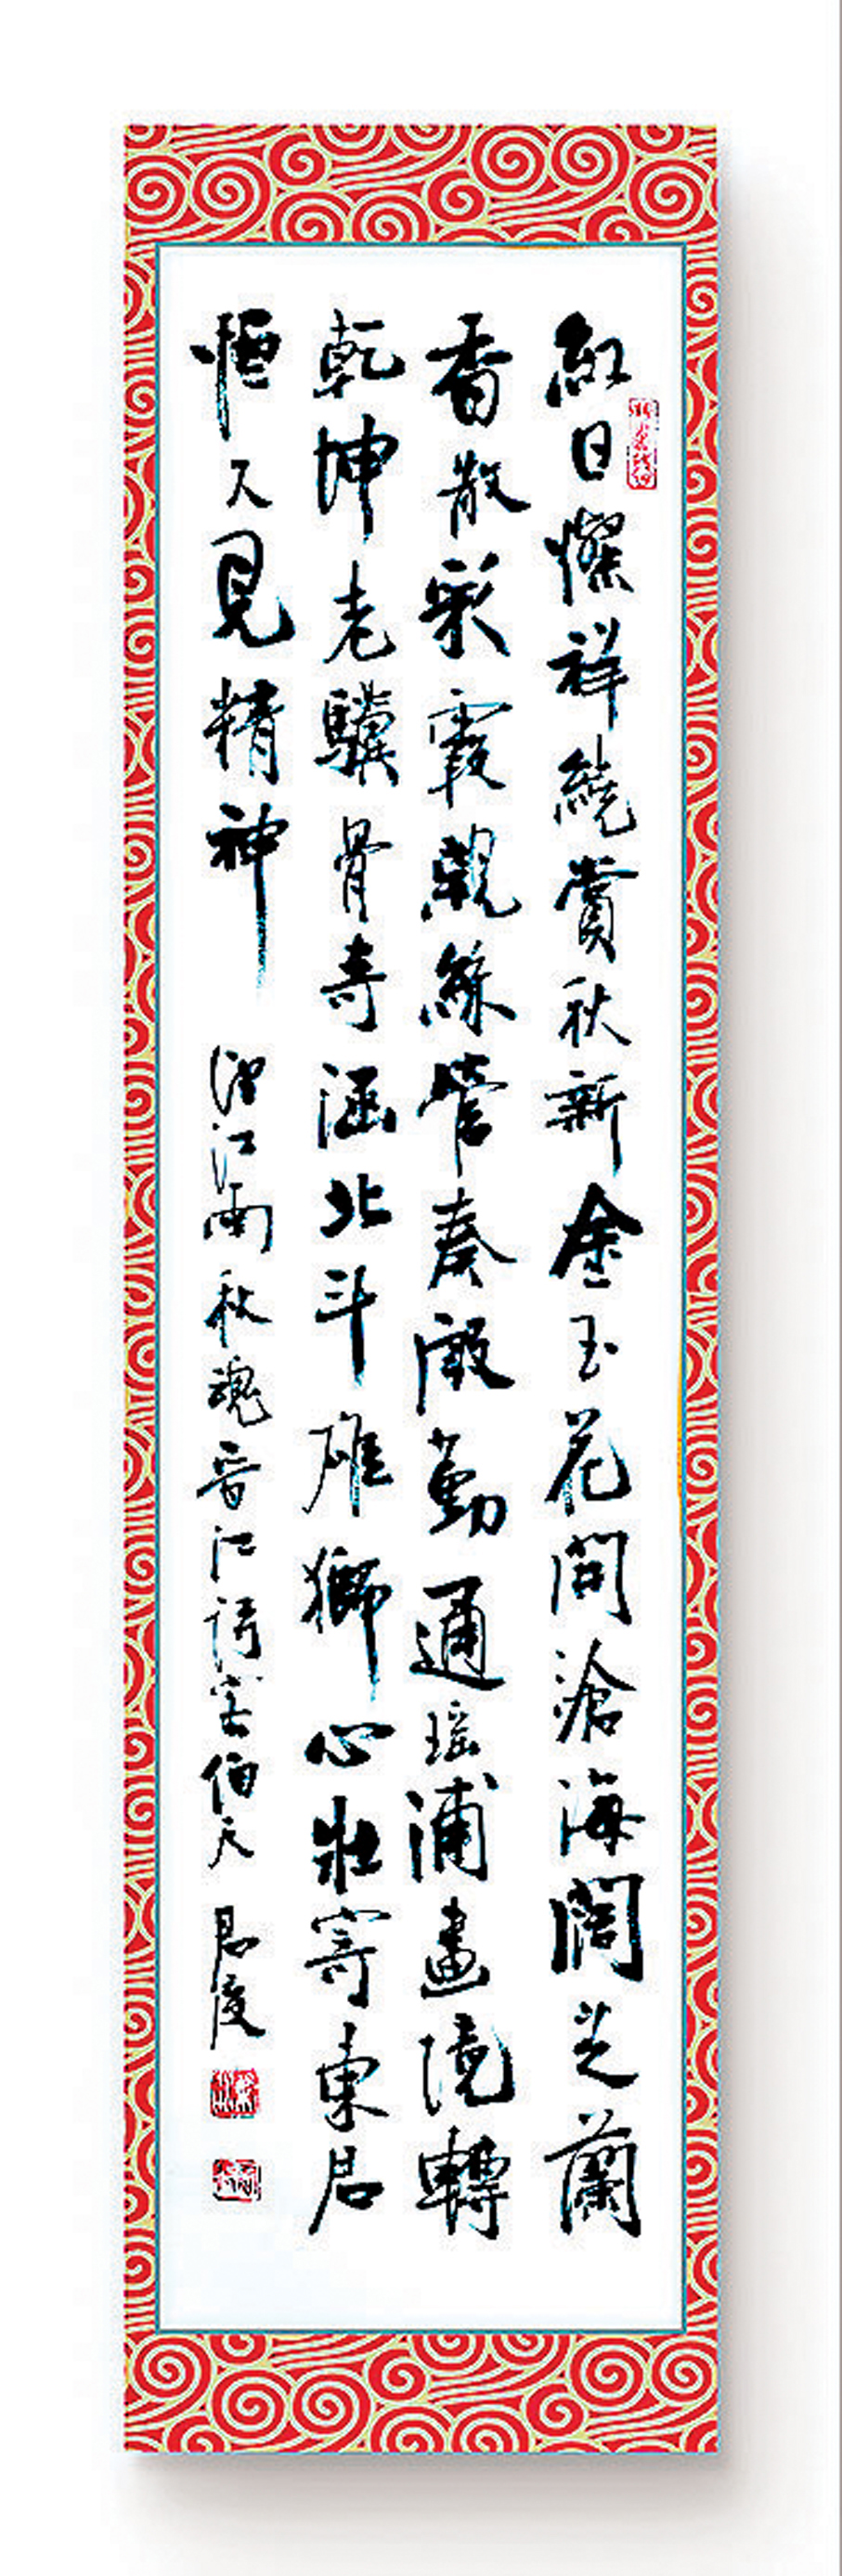 紅日燦祥繞賞秋新金玉花開滄海闊芝蘭
香散彩霞親絲管奏殷勤通瑤浦畫境轉
乾坤老驥骨奇涵北斗雄獅心壯寄東君
恒久見精神 望江南秋魂晋江詩客伯天 君度